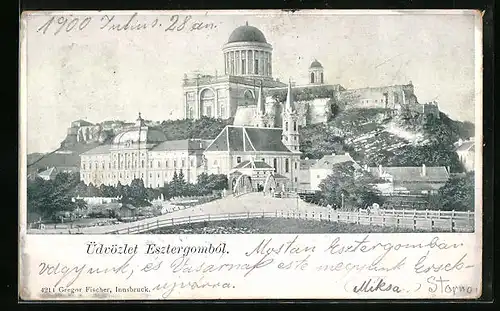 1900 Julius. 28 án.
Üdvözlet Esztergomból.
Mostan Esztergomban
vagyunk, és Vasárnap este megyünk Érsek-
ujvárra.
(Miksa) Storno
4211 Gregor Fischer, Innsbruck.